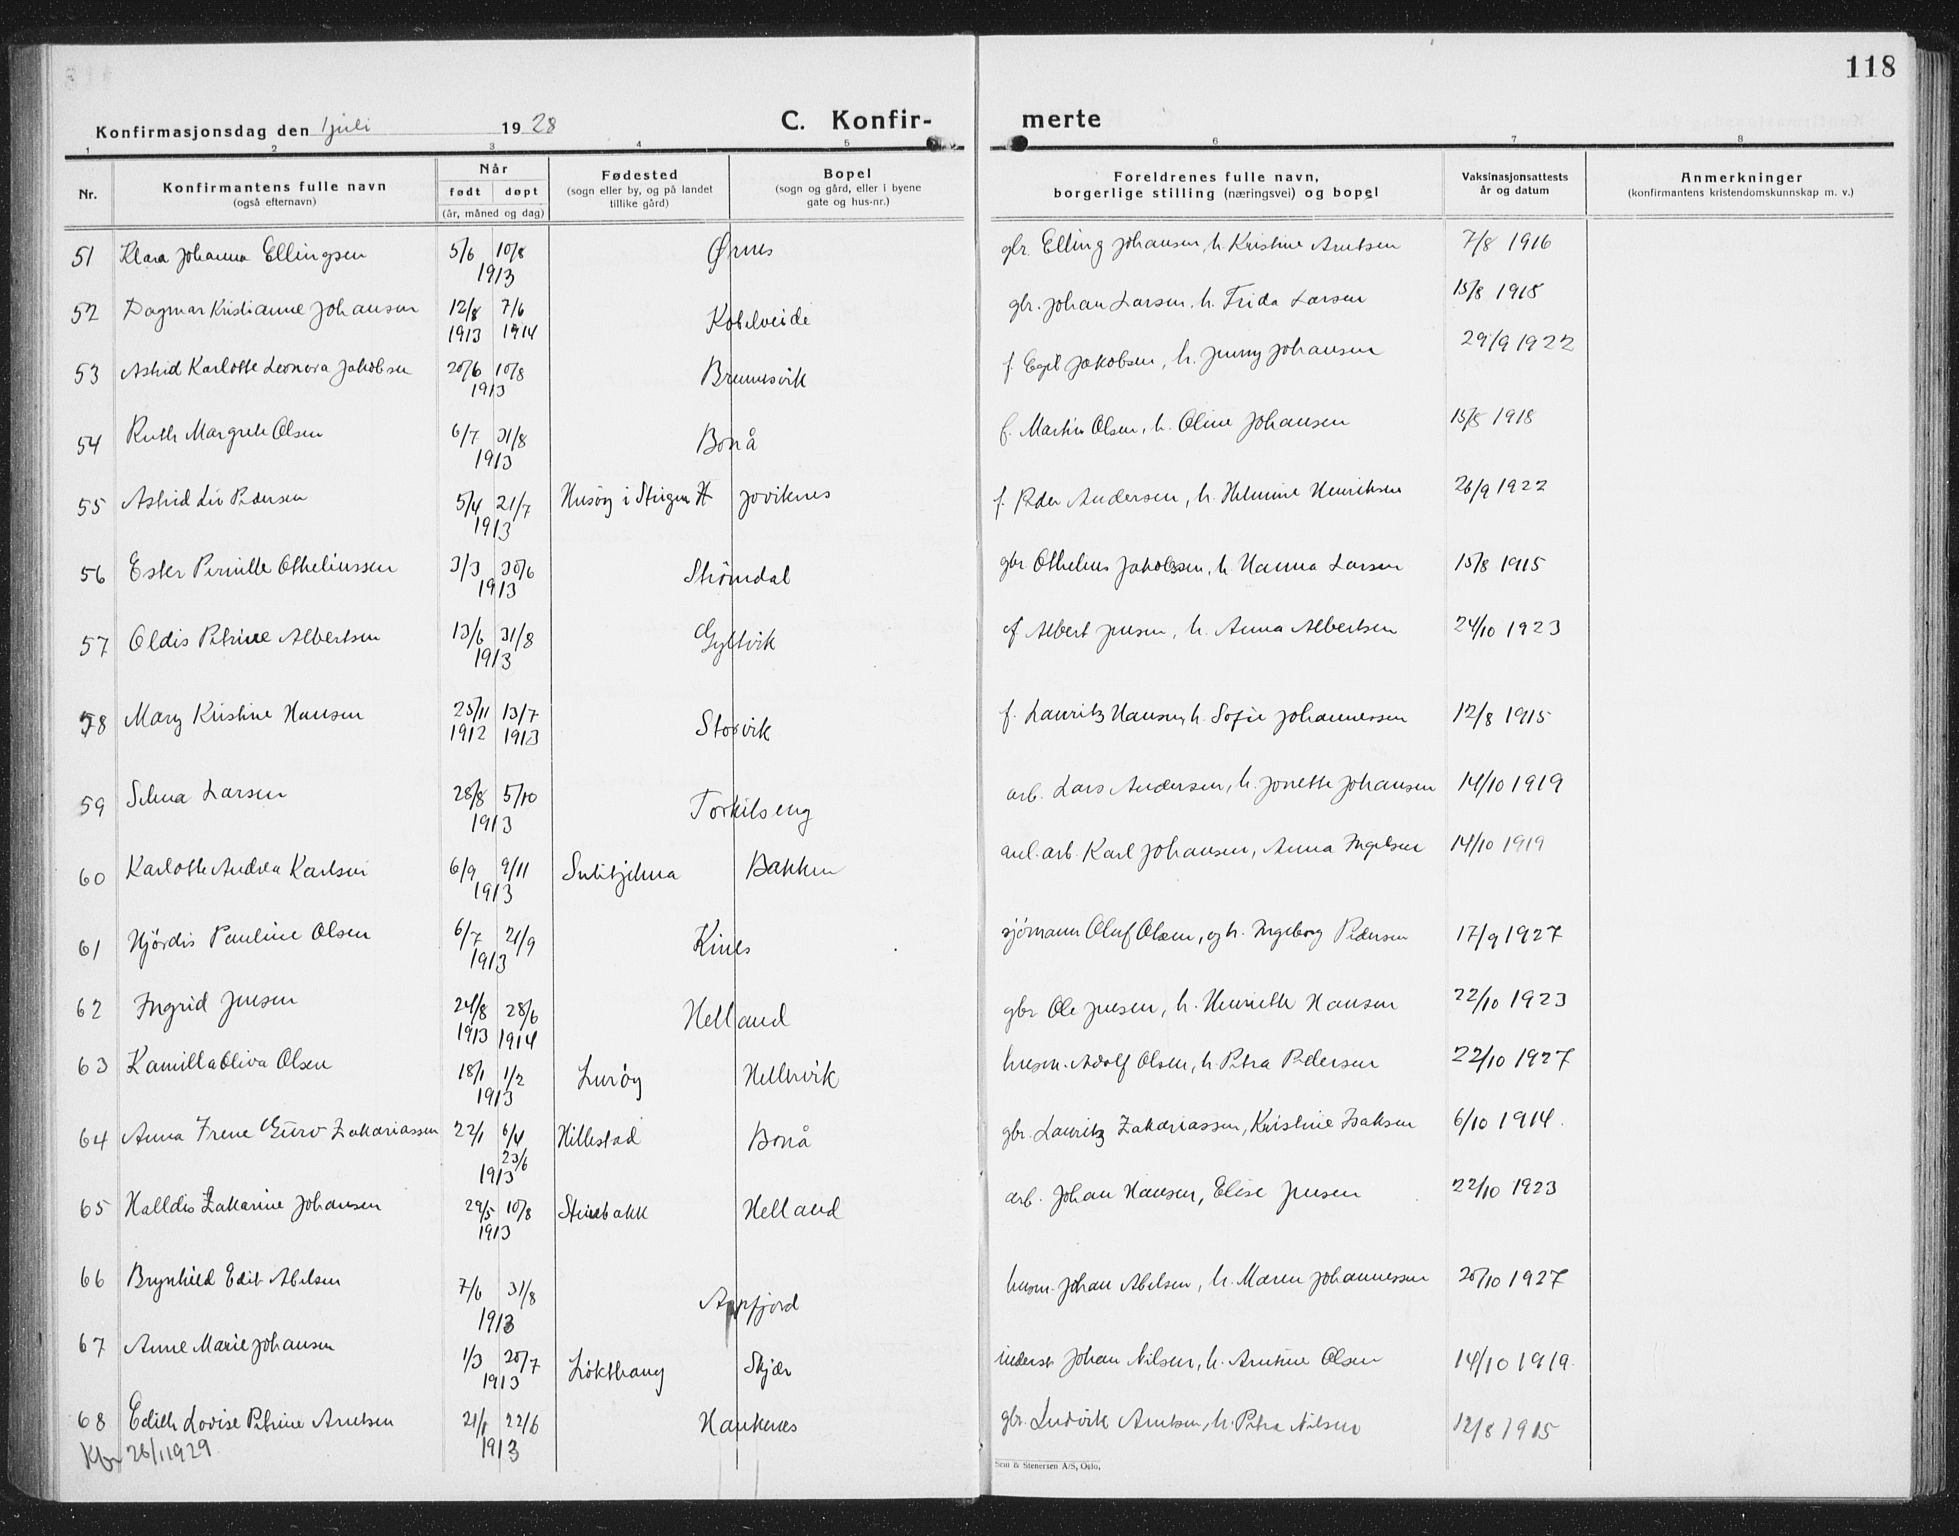 118
Konfirmasjonsdag den 1 juli 1928 C. Konfir- merte
1 2 3 4 5 6 7 8
Nr. Konfirmantens fulle navn (også efternavn) Når født døpt (år, måned og dag) Fødested (sogn eller by, og på landet tillike gård) Bopel (sogn og gård, eller i byene gate og hus-nr.) Foreldrenes fulle navn, borgerlige stilling (næringsvei) og bopel Vaksinasjonsattests år og datum Anmerkninger (konfirmantens kristendomskunnskap m. v.)
51 Klara Johanna Ellingsen 5/6 10/8 1913 Ørnes gbr. Elling Johansen, h. Kristine Arntsen 7/8 1916
52 Dagmar Kristianne Johansen 12/8 1913 7/6 1914 Kobelveide gbr. Johan Larsen, h. Frida Larsen 15/8 1918
53 Astrid Karlotte Leonora Jakobsen 20/6 10/8 1913 Brunnesvik f. Egil Jakobsen, h. Jenny Johansen 29/9 1922
54 Ruth Margrete Olsen 6/7 31/8 1913 Bonå f. Martin Olsen, h. Oline Johansen 15/8 1918
55 Astrid Liv Pedersen 5/4 21/7 1913 Husøy i Steigen Hjoviknes f. Peder Andersen, h. Helmine Henriksen 26/9 1922
56 Ester Pernille Otheliussen 3/3 30/6 1913 Strømdal gbr Othelius Jakobsen, h Hanna Larsen 15/8 1915
57 Oldis Petrine Albertsen 13/6 31/8 1913 Gyltvik f Albert Jensen, h. Anna Albertsen 24/10 1923
58 Mary Kristine Hansen 25/11 1912 13/7 1913 Storvik f. Lauritz Hansen, h. Sofie Johannessen 12/8 1915
59 Selma Larsen 28/8 5/10 1913 Torkilseng arb. Lars Andersen, h. Jonette Johansen 14/10 1919
60 Karlotte Andrea Karlsen 6/9 9/11 1913 Sulitjelma Bakken anl. arb. Karl Johansen, Anna Ingelsen 14/10 1919
61 Hjørdis Pauline Olsen 6/7 21/9 1913 Kines sjømann Oluf Olsen, og h. Ingeborg Pedersen 17/9 1927
62 Ingrid Jensen 24/8 1913 28/6 1914 Helland gbr Ole Jensen, h. Henriette Hansen 22/10 1923
63 Kamilla Oliva Olsen 18/1 1/2 1913 Lurøy Hellervik husm. Adolf Olsen, h. Petra Pedersen 22/10 1927
64 Anna Irene Guro Zakariassen 22/1 6/4 23/6 1913 Hillestad Bonå gbr. Lauritz Zakariassen, Kristine Isaksen 6/10 1914.
65 Halldis Zakarine Johansen 29/5 10/8 1913 Steinbakk Helland arb. Johan Hansen, Elise Jensen 22/10 1923
66 Brynhild Edit Abelsen 7/6 31/8 1913 Appfjord husm. Johan Abelsen, h. Maren Johannessen 20/10 1927
67 Anne Marie Johansen 1/3 20/7 1913 Løkthaug Skjær inderst Johan Nilsen, h. Arntine Olsen 14/10 1919.
68 Edith Lovise Petrine Arntsen 21/1 22/6 1913 Haukenes gbr. Ludvik Arntsen, h. Petra Nilsen 12/8 1915
Kbr 26/1 1929
Sem & Stenersen A/S, Oslo.